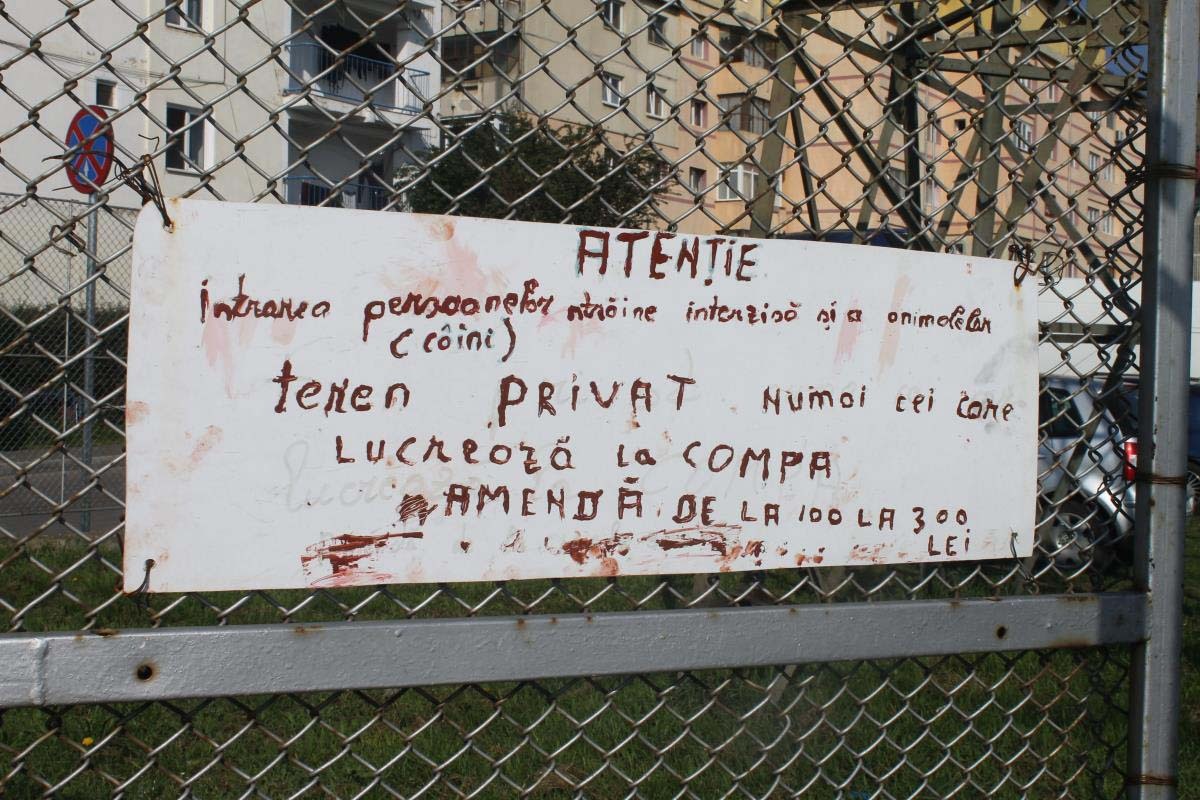 ATENȚIE
Intrarea persoanelor străine interzisă și a animalelor
(câini)
teren PRIVAT Numai cei care
LUCREAZĂ La COMPA
AMENDĂ DE LA 100 LA 300
LEI